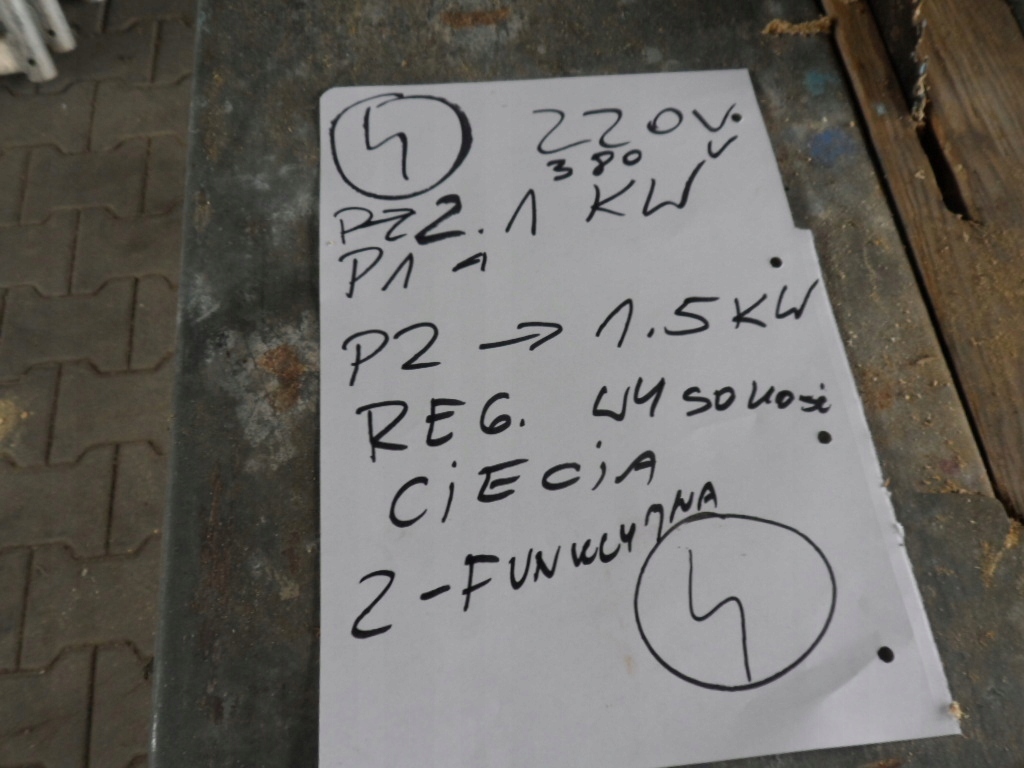 220V.
380 V
P 2. 1 KW
P1
P2 → 1.5 KW
REG. WYSOKOŚĆ
CiECiA
2-FUNKCYJNA